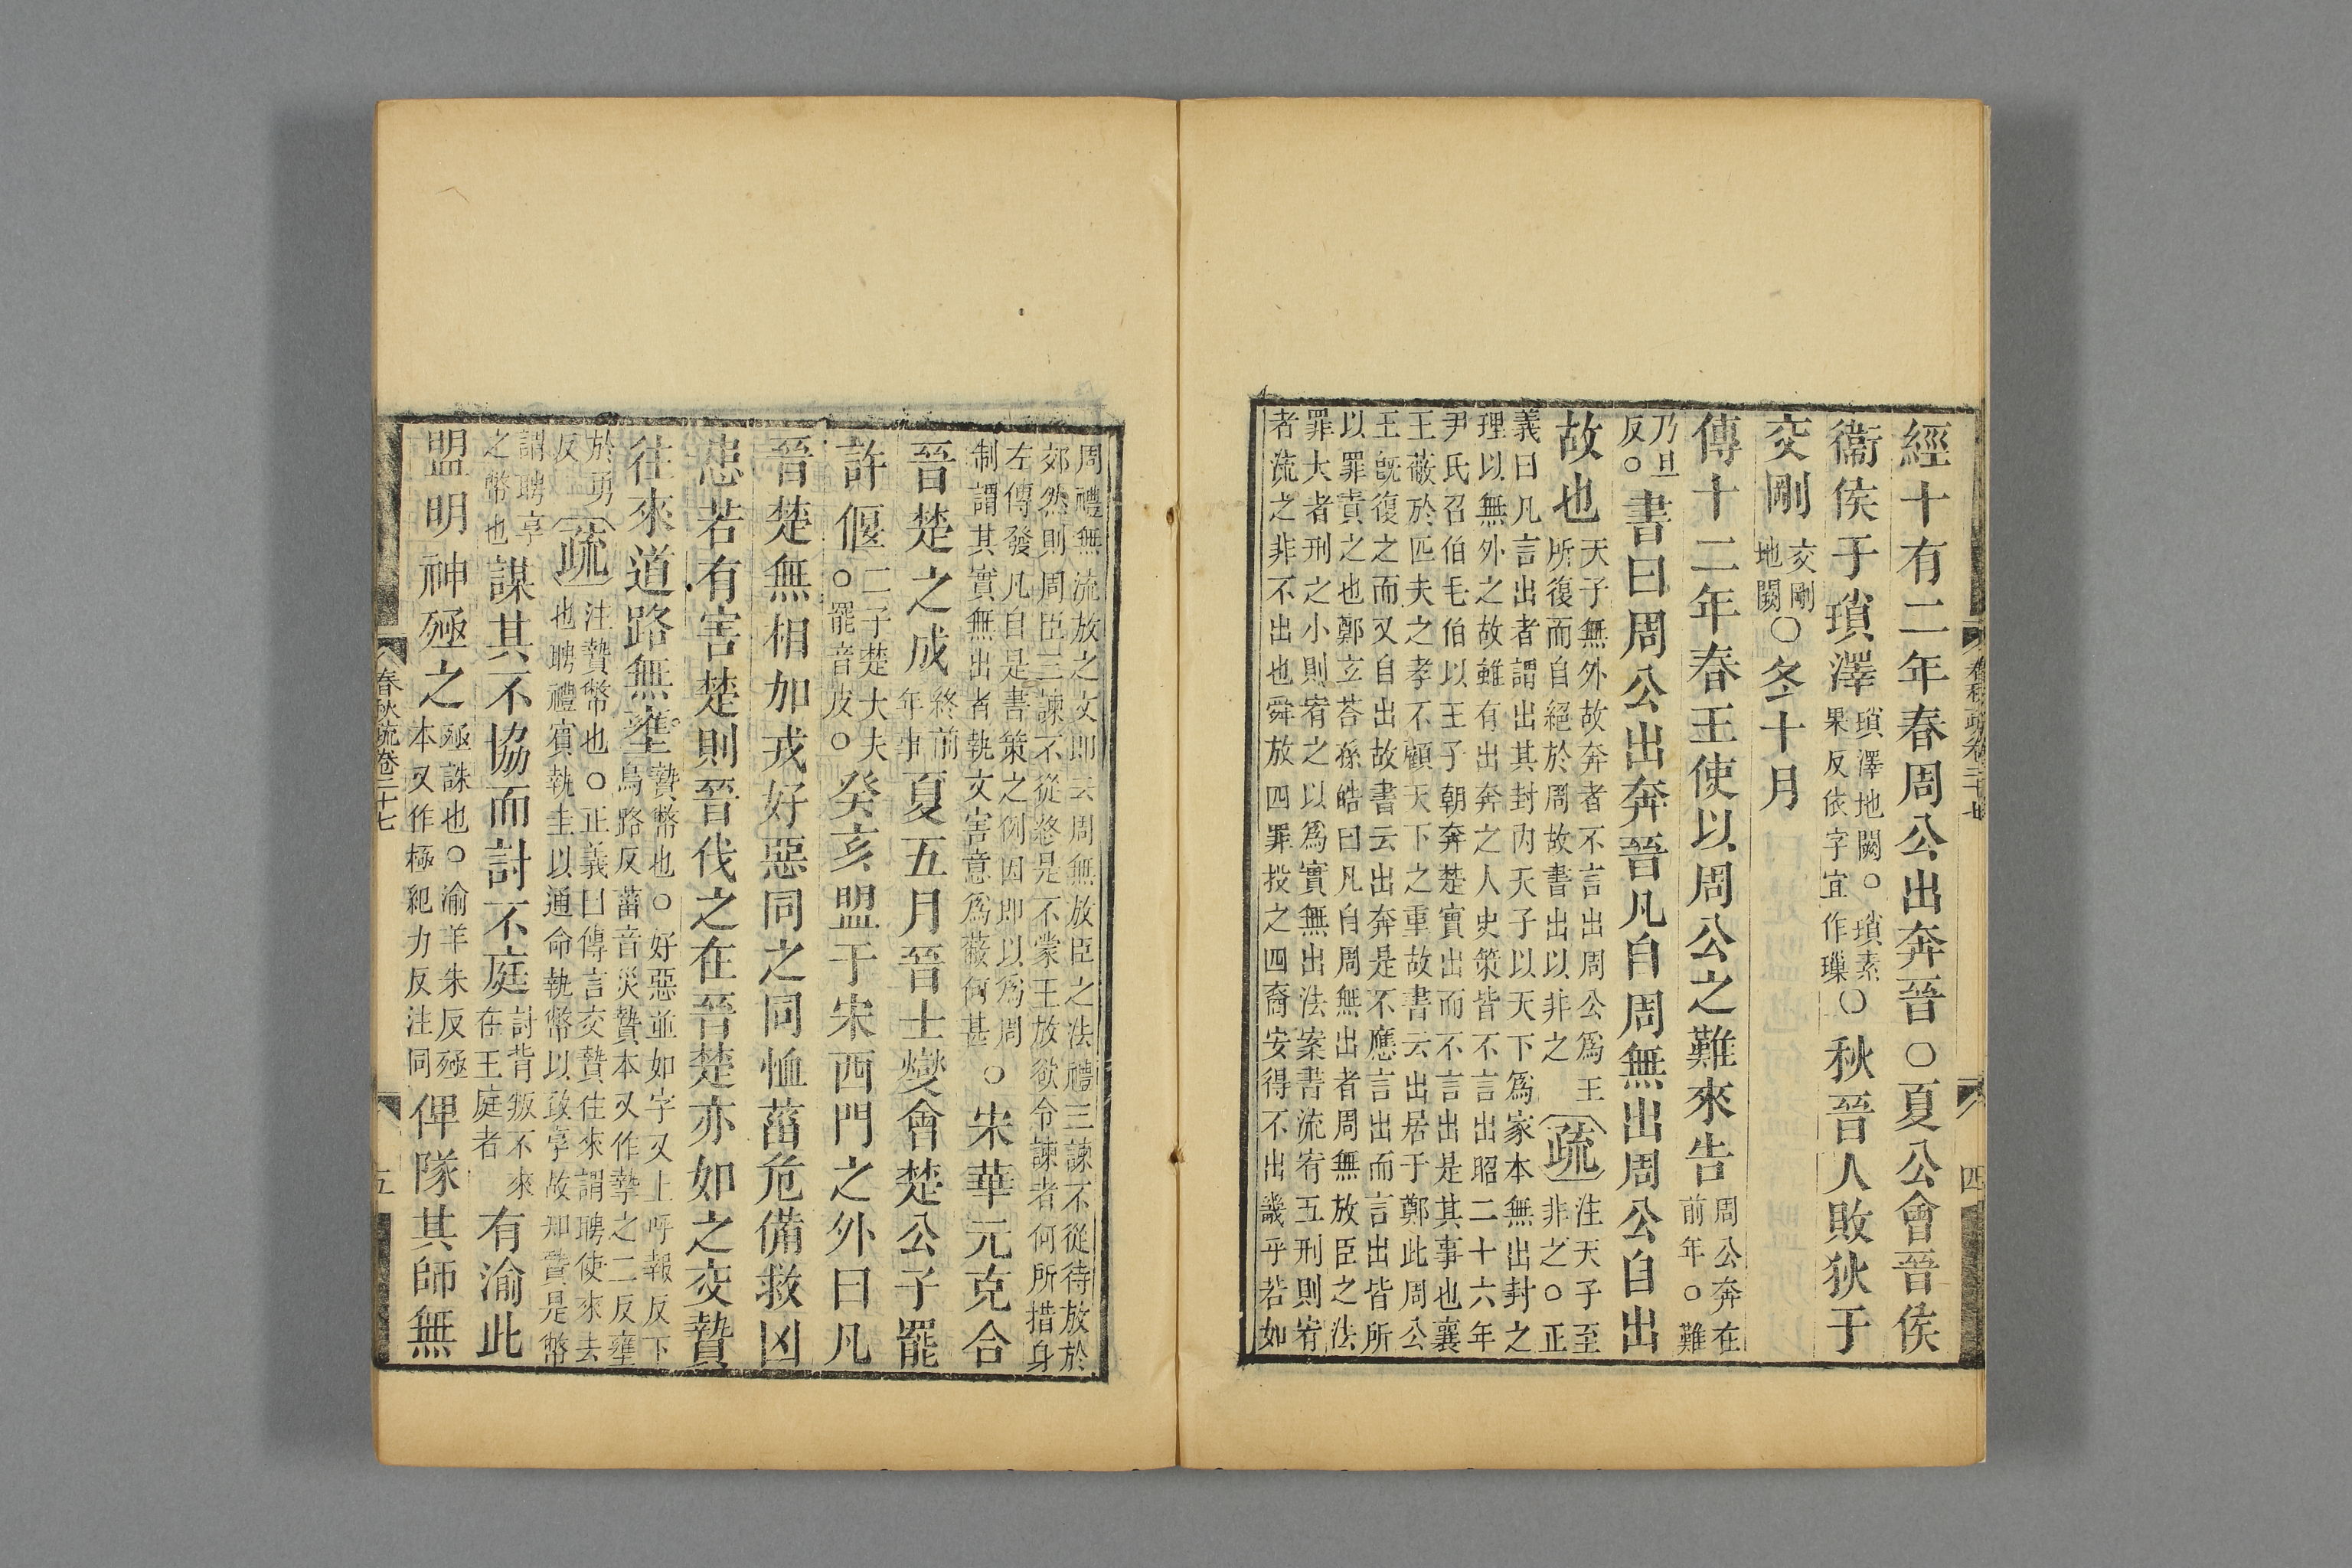 經十有二年春周公出奔晉○夏公會晉侯
衞侯于瑣澤瑣澤地闕○瑣素果反依字宜作璅○秋晉人敗狄于
交剛交剛地闕○冬十月
傳十二年春王使以周公之難來告周公奔在前年○難
乃旦反○書曰周公出奔晉凡自周無出周公自出
故也天子無外故奔者不言出周公爲王所復而自絕於周故書出以非之疏注天子至非之○正
義曰凡言出者謂出其封內天子以天下爲家本無出封之
理以無外之故雖有出奔之人史策皆不言出昭二十六年
尹氏召伯毛伯以王子朝奔楚實出而不言出是其事也襄
王蔽於匹夫之孝不顧天下之重故書云出居于鄭此周公
王旣復之而又自出故書云出奔是不應言出而言出皆所
以罪責之也鄭玄荅孫皓曰凡自周無出者周無放臣之法
罪大者刑之小則宥之以爲實無出法案書流宥五刑則宥
者流之非不出也舜放四罪投之四裔安得不出畿乎若如
春秋疏卷二十七
四
周禮無流放之文即云周無放臣之法禮三諫不從待放於
郊然則周臣三諫不從終是不蒙王放欲令諫者何所措身
左傳發凡自是書策之例因即以爲周制謂其實無出者執文害意爲蔽何甚○宋華元克合
晉楚之成終前年事夏五月晉士燮會楚公子罷
許偃二子楚大夫○罷音皮○癸亥盟于宋西門之外曰凡
晉楚無相加戎好惡同之同恤菑危備救凶
患若有害楚則晉伐之在晉楚亦如之交贄
往來道路無壅贄幣也○好惡並如字又上呼報反下烏路反菑音災贄本又作摯之二反壅
於勇反疏注贄幣也○正義曰傳言交贄往來謂聘使來去也聘禮賓執圭以通命執幣以致享故知贄是幣
謂聘享之幣也謀其不協而討不庭討背叛不來在王庭者有渝此
盟明神殛之殛誅也○渝羊朱反殛本又作極紀力反注同俾隊其師無
春秋疏卷二十七
五